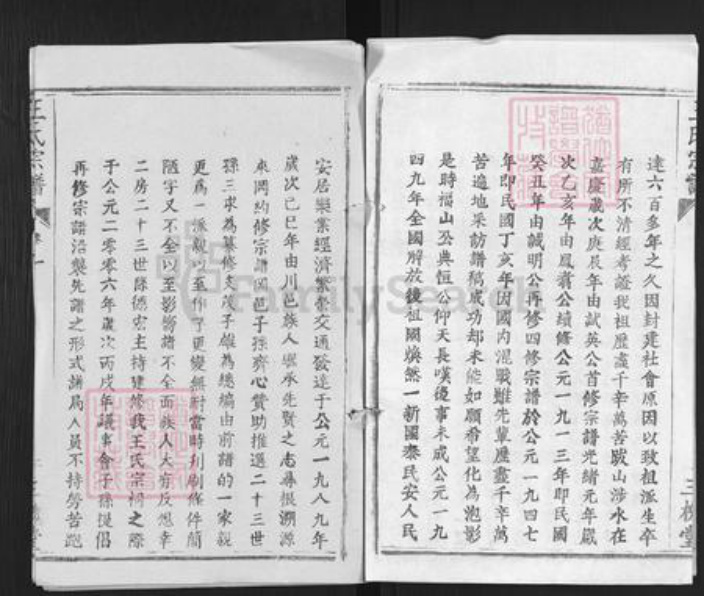 達六百多年之久因封建社會原因以致祖派生卒
有所不清經考證我祖歷盡千辛萬苦跋山涉水在
嘉慶歲次庚辰年由試英公首修宗譜光緒元年歲
次乙亥年由鳳翥公續修公元一九一三年即民國
癸丑年由誠明公再修四修宗譜於公元一九四七
年即民國丁亥年因國內混戰雖先輩歷盡千辛萬
苦遍地采訪譜稿成功却未能如願希望化為泡影
是時福山公典恒公仰天長嘆後事未成公元一九
四九年全國解放後祖國煥然一新國泰民安人民
安居樂業經濟繁榮交通發達于公元一九八九年
歲次己巳年由川邑族人繼承先賢之志尋根溯源
來岡約修宗譜岡邑子孫齊心贊助推選二十三世
孫三求為篡修支茂子雄為總編由前譜的一家親
更為一派親以至仰了更變無耐當時刊刷條件簡
陋字又不全以至影响譜不全面族人大有反想幸
二房二十三世孫德宏主持建修我王氏宗祠之際
于公元二零零六年歲次丙戌年議事會子孫提倡
再修宗譜沿襲先譜之形式譜局人員不持勞苦跑
王氏宗譜
卷一
三槐堂
FamilySearch